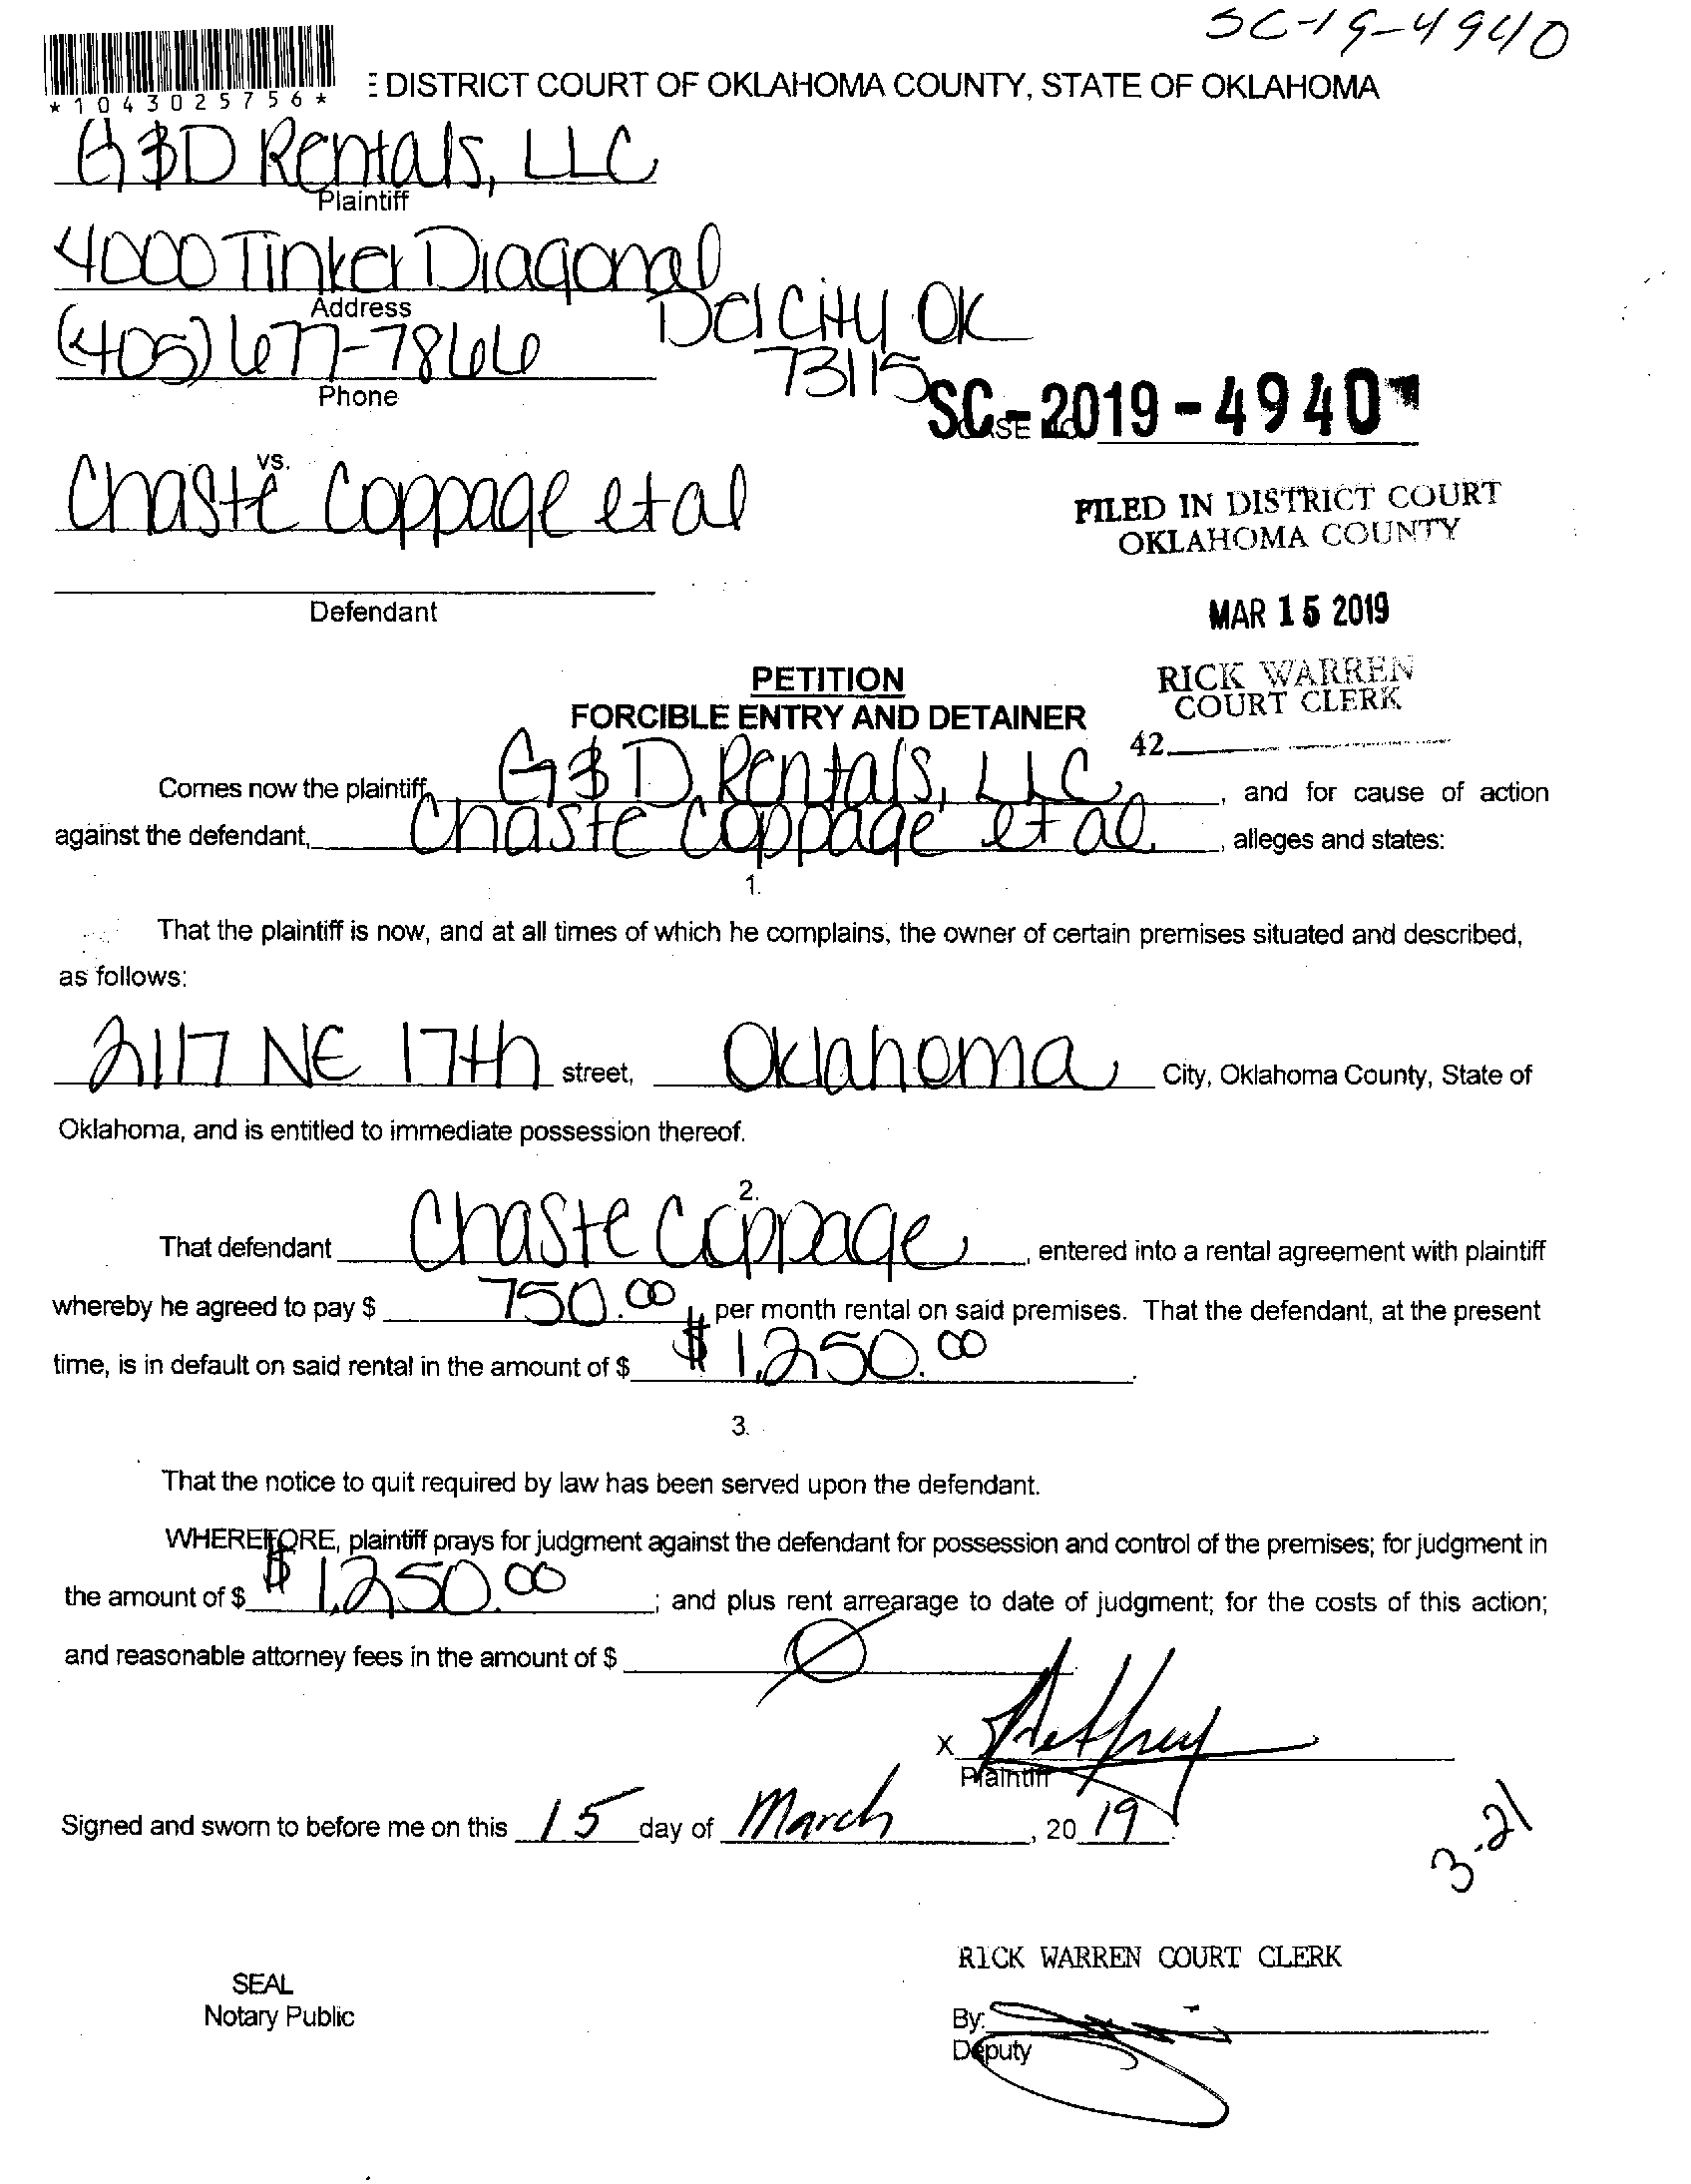 SC-19-4940
*1043025756*
E DISTRICT COURT OF OKLAHOMA COUNTY, STATE OF OKLAHOMA
G&D Rentals, LLC
Plaintiff
4000 Tinker Diagonal
Address
Del City OK
(405) 677-7866
73115
Phone
SC-2019-4940
vs.
Chaste Coppage et al
FILED IN DISTRICT COURT
OKLAHOMA COUNTY
Defendant
MAR 15 2019
PETITION
RICK WARREN
COURT CLERK
FORCIBLE ENTRY AND DETAINER
42
Comes now the plaintiff, G&D Rentals, LLC, and for cause of action
against the defendant, Chaste Coppage et al, alleges and states:
1.
That the plaintiff is now, and at all times of which he complains, the owner of certain premises situated and described,
as follows:
2117 NE 17th street, Oklahoma City, Oklahoma County, State of
Oklahoma, and is entitled to immediate possession thereof.
2.
That defendant Chaste Coppage, entered into a rental agreement with plaintiff
whereby he agreed to pay $ 750.00 per month rental on said premises. That the defendant, at the present
time, is in default on said rental in the amount of $ $1,250.00.
3.
That the notice to quit required by law has been served upon the defendant.
WHEREFORE, plaintiff prays for judgment against the defendant for possession and control of the premises; for judgment in
the amount of $ $1,250.00; and plus rent arrearage to date of judgment; for the costs of this action;
and reasonable attorney fees in the amount of $ Ø
X
Plaintiff
Signed and sworn to before me on this 15 day of March, 2019.
3-21
RICK WARREN COURT CLERK
SEAL
Notary Public
By:
Deputy